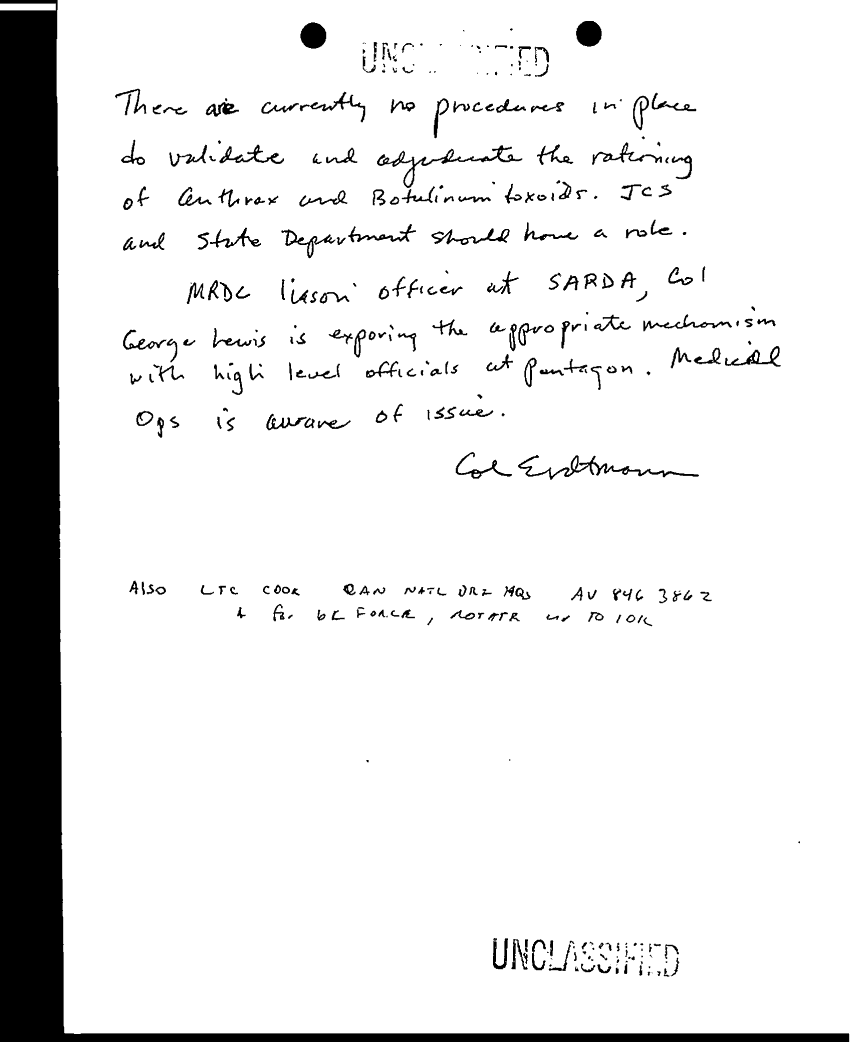 UNCLASSIFIED
There are currently no procedures in place
do validate and adjuducate the rationing
of Anthrax and Botulinum toxoids. JCS
and State Department should have a role.
MRDC liason officer at SARDA, Col
George Lewis is exporing the appropriate mechanism
with high level officials at Pentagon. Medical
Ops is aware of issue.
Col Erdtmann
Also LTC COOK CAN NATL HQs AV 846 3862
for FORCE, TO 10K
UNCLASSIFIED